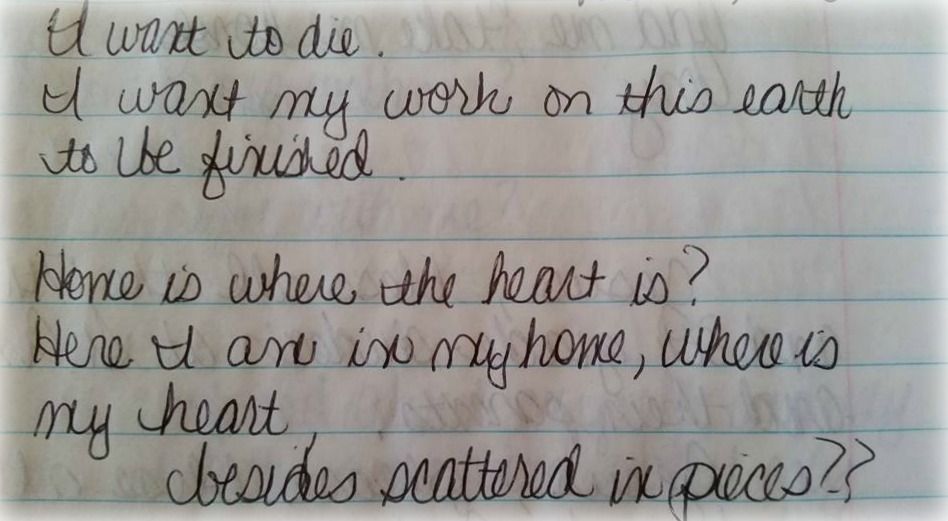 I want to die.
I want my work on this earth
to be finished.
Home is where the heart is?
Here I am in my home, where is
my heart,
besides scattered in pieces??